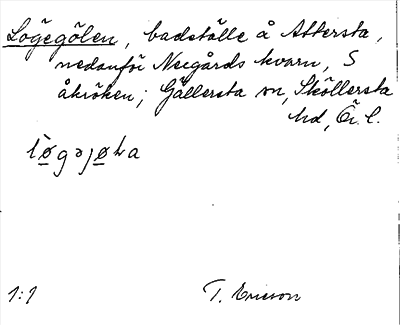 Lögegölen, badställe å Attersta,
nedanför Nygårds kvarn, S
åkröken; Gällersta sn, Sköllersta
hd, Ör. l.
1:1 T. Ericson